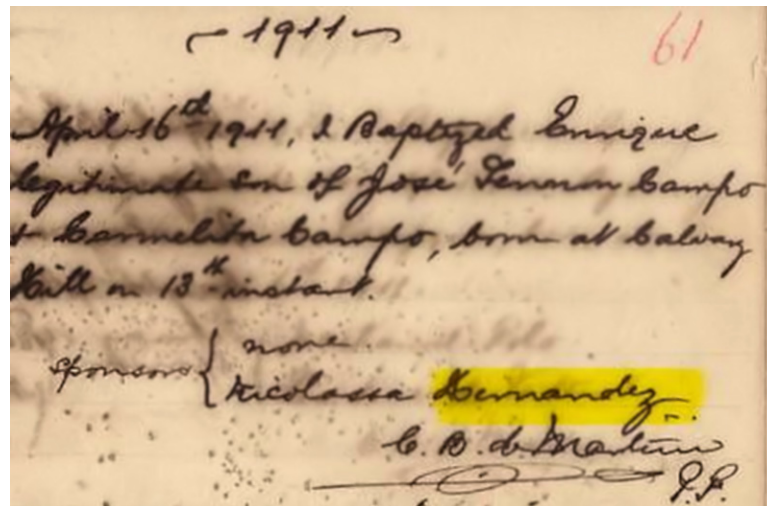 1911
61
April 16th 1911, I Baptized Enrique
legitimate son of José Lennon Campo
& Carmelita Campo, born at Calvary
Hill on 13th instant.
sponsors { none.
Nicolassa Hernandez.
C. B. de Martini
P.P.